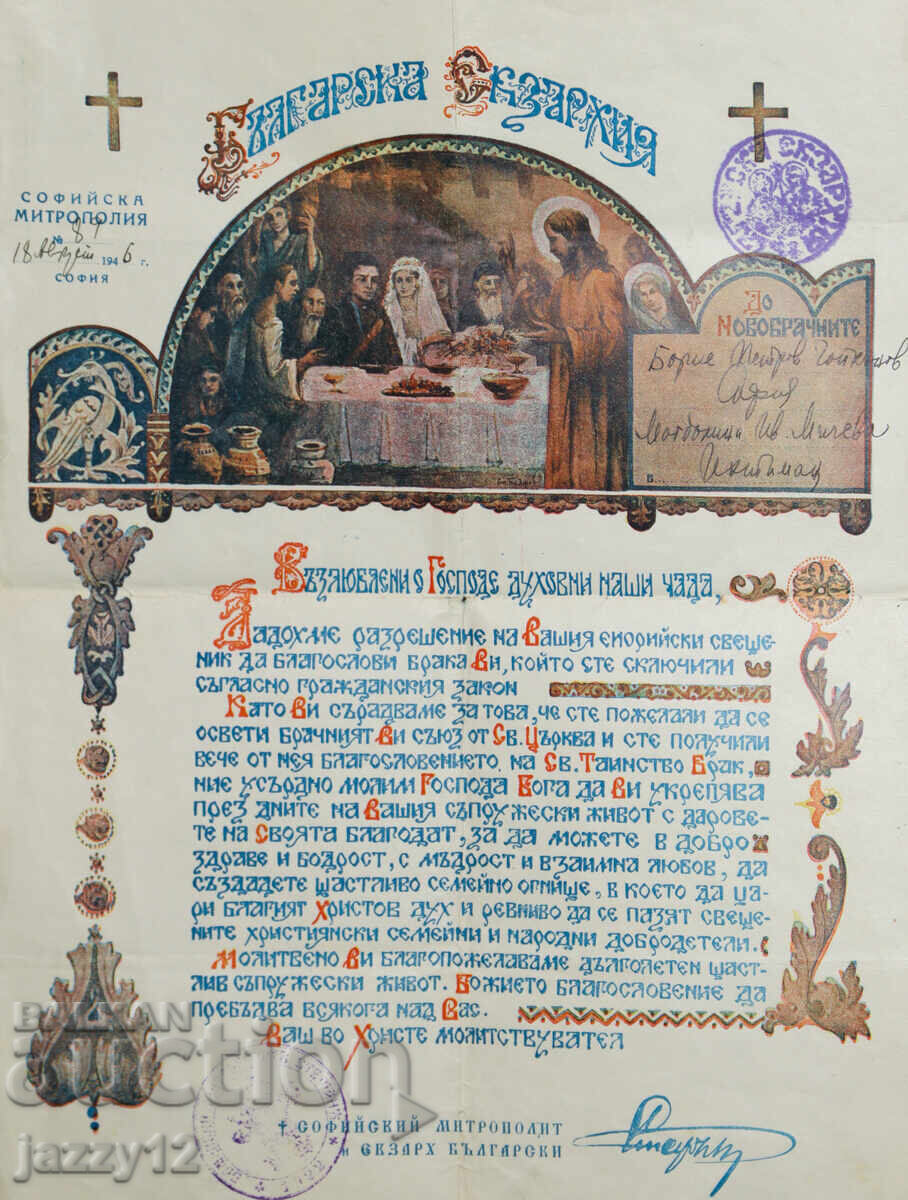 Българска Екзархия
СОФИЙСКА
МИТРОПОЛИЯ
№ 87
18 Август 1946 г.
СОФИЯ
До
Новобрачните
Борис
София
Ив. Мичева
Ихтиман
В...
Възлюблени о Господе духовни наши чада,
Дадохме разрешение на Вашия енорийски свеще
ник да благослови брака Ви, който сте сключили
съгласно гражданския закон
Като Ви сърадваме за това, че сте пожелали да се
освети брачният Ви съюз от Св. Църква и сте получили
вече от нея благословението на Св. Таинство Брак,
ние усърдно молим Господа Бога да Ви укрепява
през дните на Вашия съпружески живот с дарове
те на Своята благодат, за да можете в добро
здраве и бодрост, с мъдрост и взаимна любов, да
създадете щастливо семейно огнище, в което да ца
ри благият Христов дух и ревниво да се пазят свеще
ните християнски семейни и народни добродетели.
Молитвено Ви благопожелаваме дълголетен щаст
лив съпружески живот. Божието благословение да
пребъдва всякога над Вас.
Ваш во Христе молитствувател
† СОФИЙСКИЙ МИТРОПОЛИТ
и ЕКЗАРХ БЪЛГАРСКИ
BALKAN
auction
jazzy12